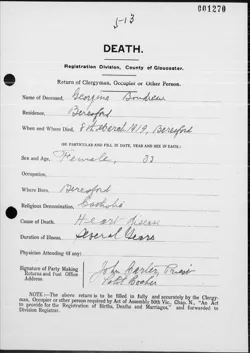 001270
5-13
DEATH.
Registration Division, County of Gloucester.
Return of Clergyman, Occupier or Other Person.
Name of Deceased, Georgine Boudreau
Residence, Beresford
When and Where Died, 8th March 1919, Beresford
(BE PARTICULAR AND FILL IN DATE, YEAR AND SEE IF EACH.)
Sex and Age, Female, 33
Occupation,
Where Born, Beresford
Religious Denomination, Catholic
Cause of Death, Heart disease
Duration of Illness, Several Years
Physician Attending (if any)
Signature of Party Making
Returns and Post Office
Address.
John Carter, Priest
Petit Rocher
NOTE:—The above return is to be filled in fully and accurately by the Clergy-
man, Occupier or other person required by Act of Assembly 50th Vic., Chap. 5, "An Act
to provide for the Registration of Births, Deaths and Marriages," and forwarded to
Division Registrar.